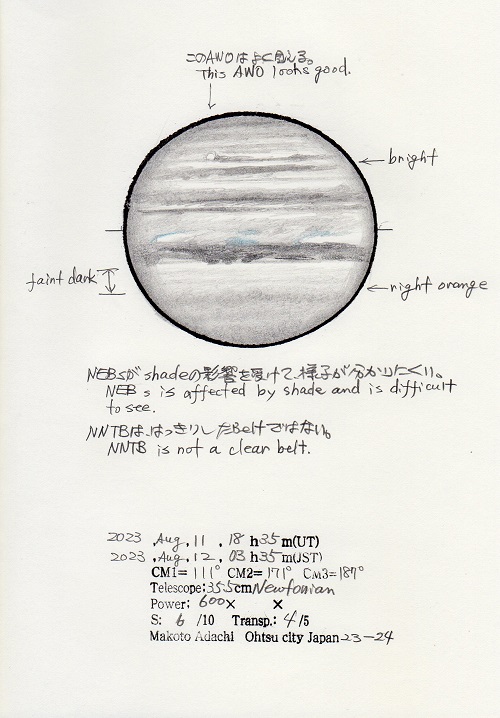 このAWOはよく見える。
This AWO looks good.
bright
faint dark
right orange
NEBsがshadeの影響を受けて、様子が分かりにくい。
NEB s is affected by shade and is difficult
to see.
NNTBは、はっきりしたBeltではない。
NNTB is not a clear belt.
2023 ,Aug,11 ,18 h35m(UT)
2023 ,Aug,12 ,03 h35m(JST)
CM1= 111° CM2= 171° CM3=187°
Telescope:35.5cmNewtonian
Power; 600× ×
S: 6 /10 Transp.: 4/5
Makoto Adachi Ohtsu city Japan 23-24